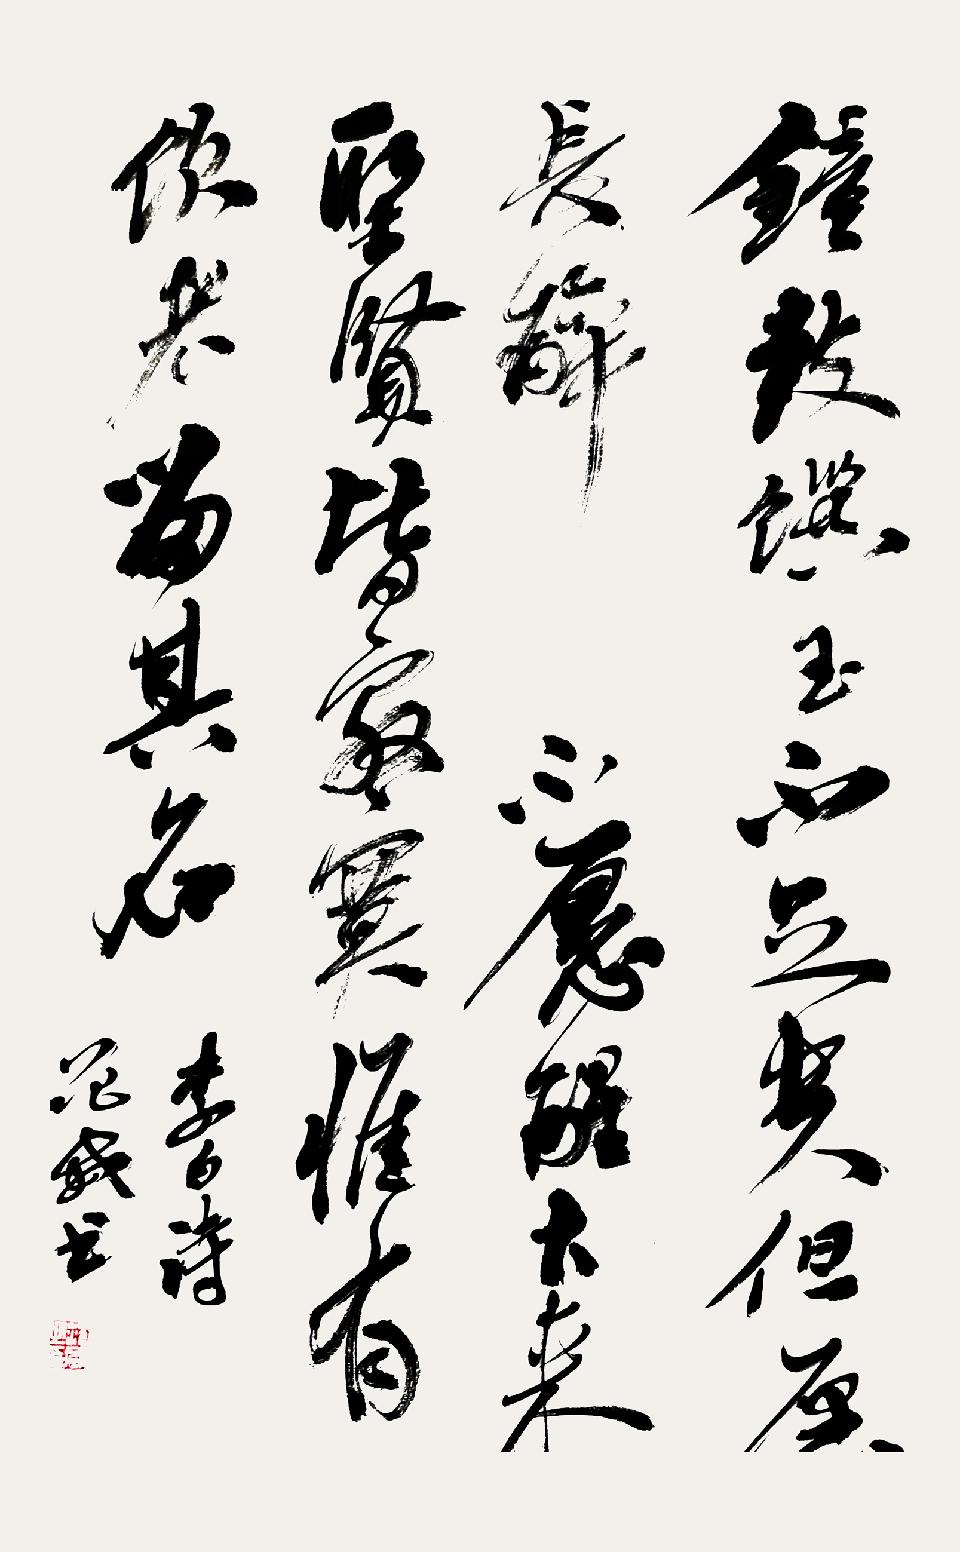 鐘鼓饌玉不足貴但愿
長醉不愿醒古来
聖賢皆寂寞惟有
飲者留其名
李白詩
范 书